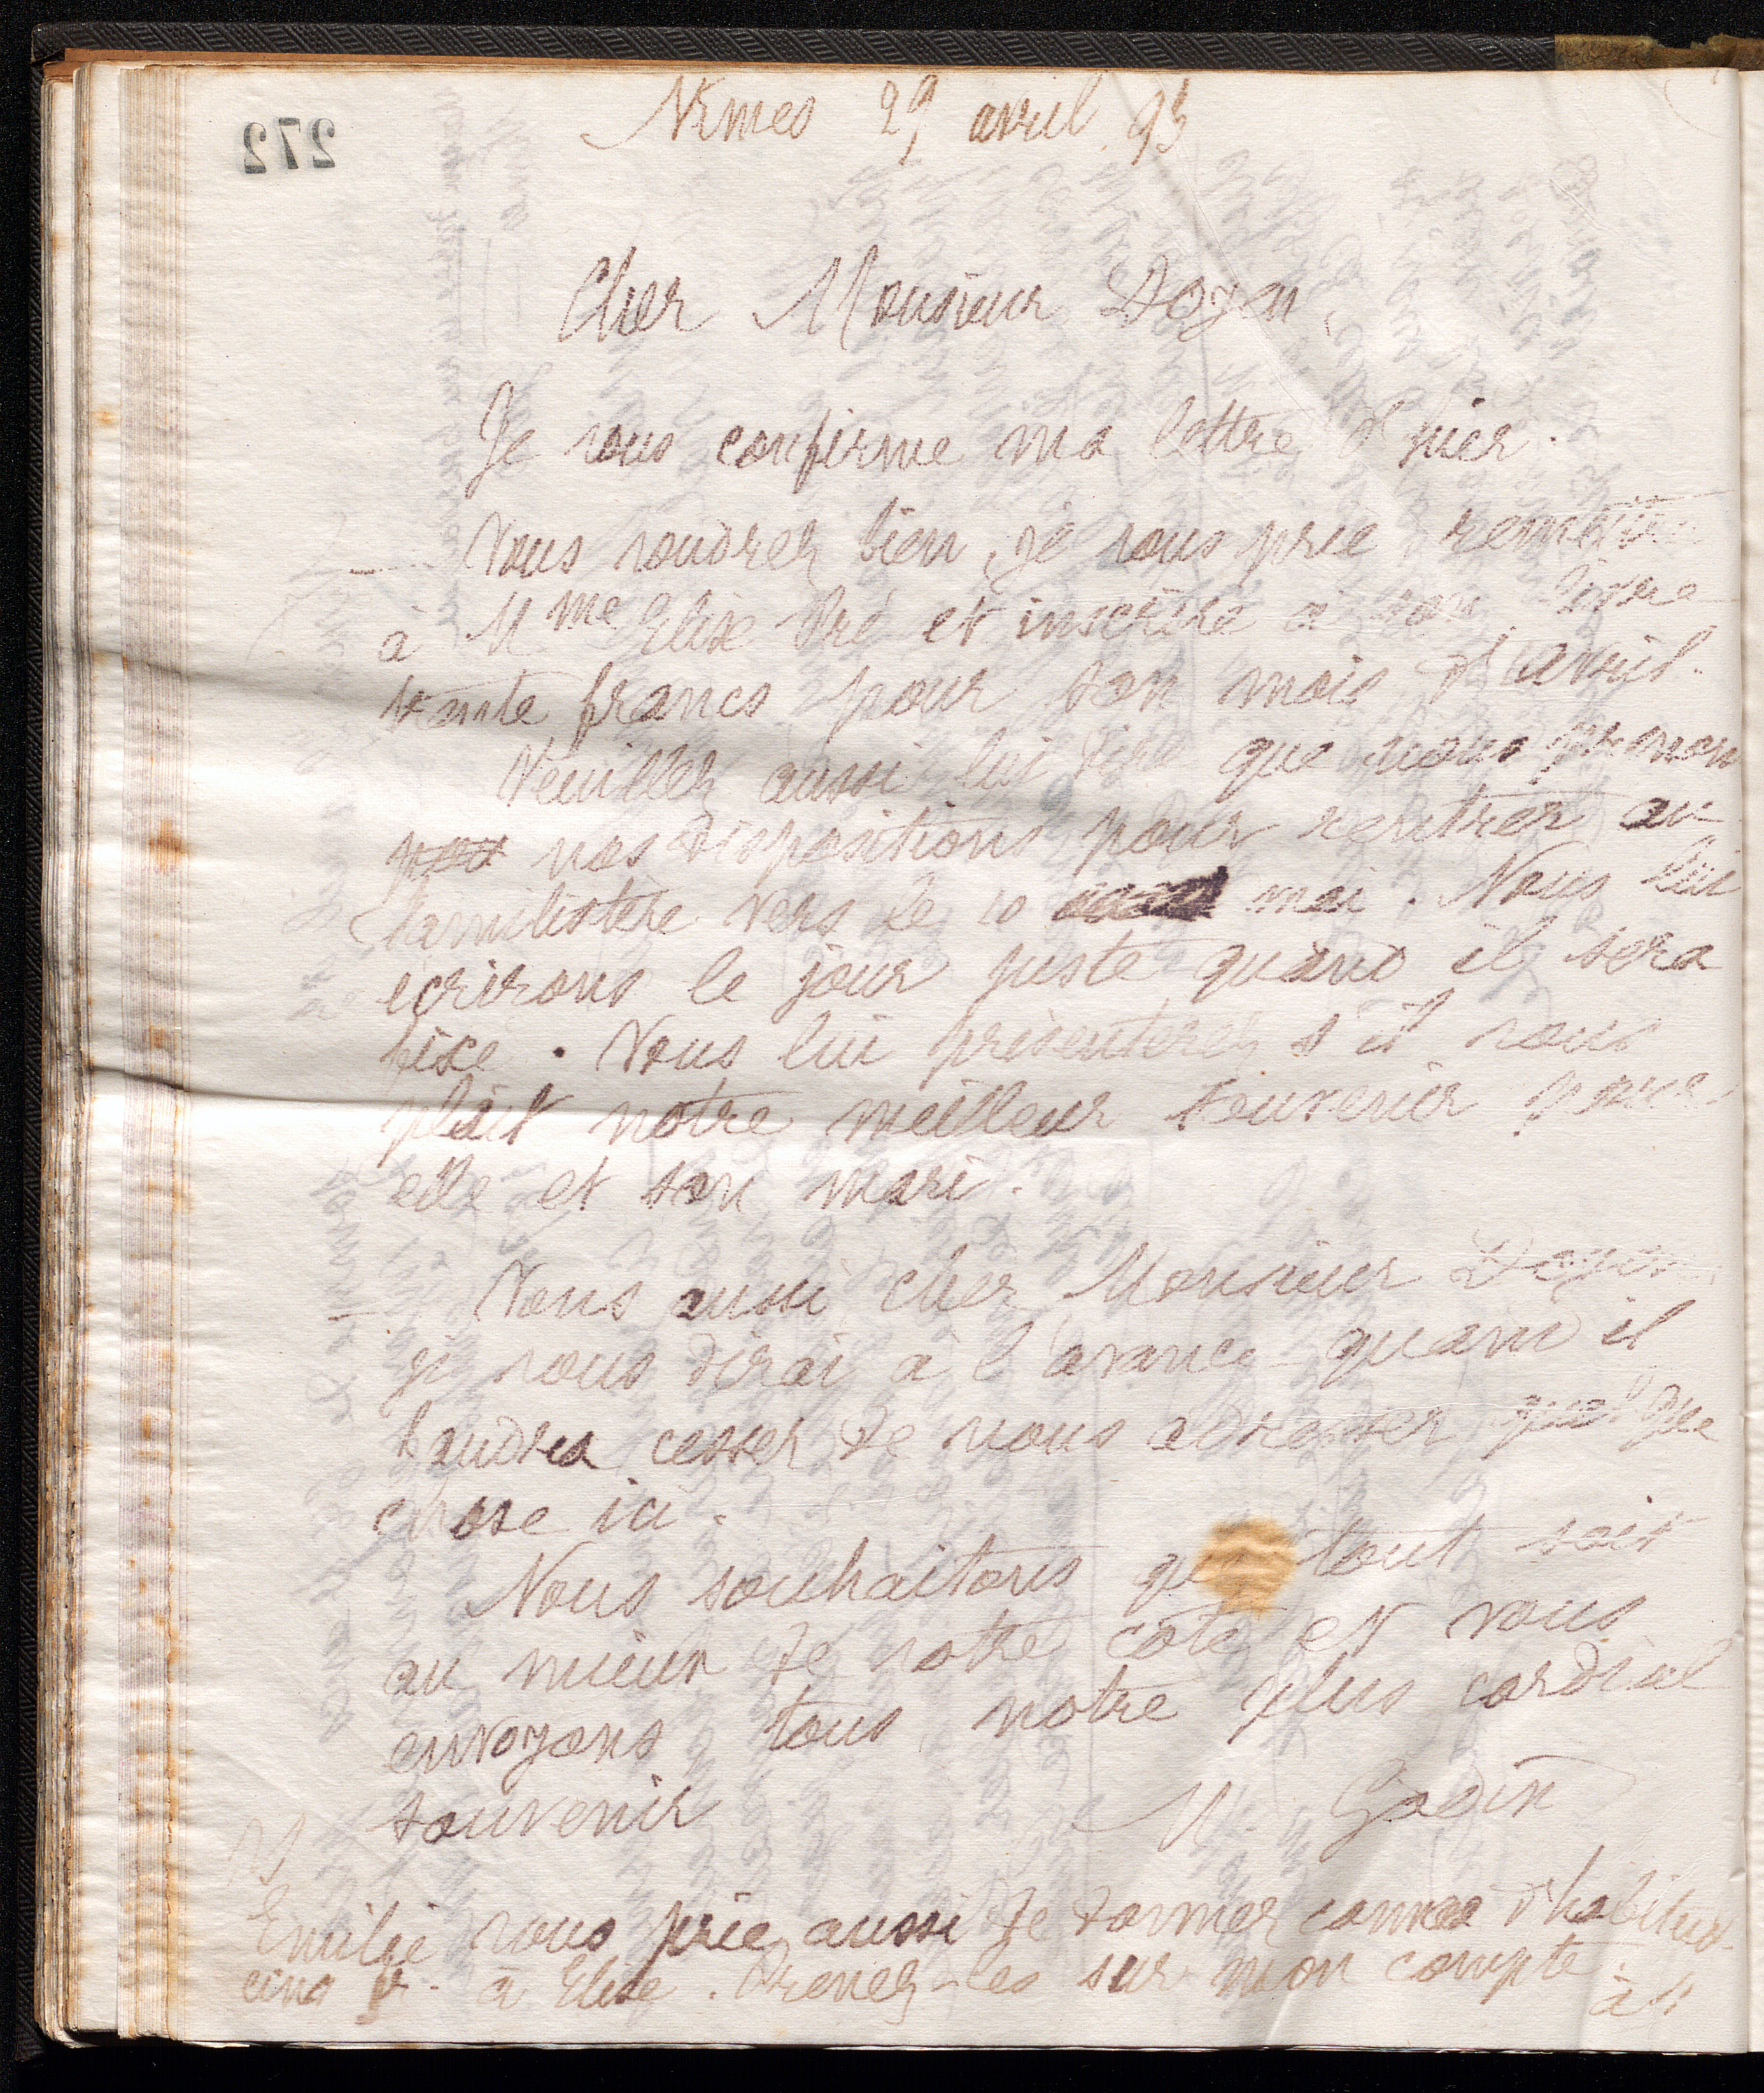 272
Nîmes 29 avril 93
Cher Monsieur Doyen,
Je vous confirme ma lettre d'hier.
Vous voudrez bien, je vous prie remettre
à Mme Elise Pré et inscrire à son livre
trente francs pour son mois d'avril.
Veuillez aussi lui dire que nous prenons
nos dispositions pour rentrer au
familistère vers le 10 mai. Nous lui
écrirons le jour juste quand il sera
fixe. Vous lui présenterez s'il vous
plait notre meilleur souvenir pour
elle et son mari.
Vous aussi cher Monsieur Doyen
je vous dirai à l'avance quand il
faudra cesser de nous adresser quelque
chose ici.
Nous souhaitons que tout soit
au mieux de votre côté et vous
envoyons tous notre plus cordial
souvenir
M. Godin
PS
Emilie vous prie aussi de donner comme d'habitude
cinq fr. à Elise. Prenez-les sur mon compte